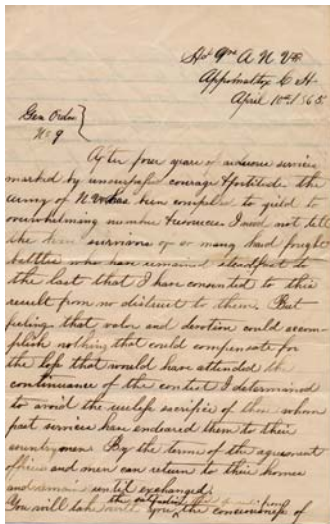 Hd Qrs A. N. Va
Appomattox C. H.
April 10th 1865
Gen Order
No 9
After four years of arduous service
marked by unsurpassed courage & fortitude the
army of N Va has been compelled to yield to
overwhelming number & resources. I need not tell
the survivors of so many hard fought
battles who have remained steadfast to
the last that I have consented to this
result from no distrust to them. But
feeling that valor and devotion could accom-
plish nothing that could compensate for
the loss that would have attended the
continuance of the contest I determined
to avoid the useless sacrifice of those whose
past services have endeared them to their
countrymen. By the terms of the agreement
officers and men can return to their homes
and remain until exchanged.
You will take with you the satisfaction from
the consciousness of